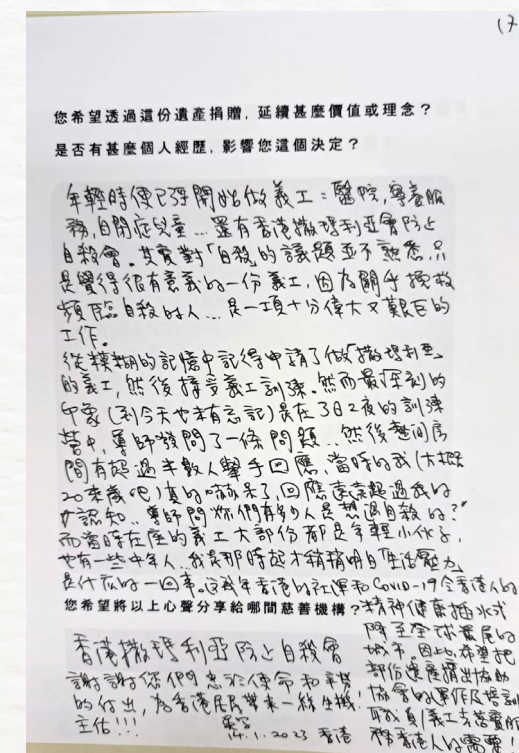 17
您希望透過這份遺產捐贈，延續甚麼價值或理念？
是否有甚麼個人經歷，影響您這個決定？
年輕時便已經開始做義工：醫院，寧養服
務，自閉症兒童...還有香港撒瑪利亞會防止
自殺會。其實對「自殺」的議題並不熟悉，只
是覺得很有意義的一份義工，因為關乎拯救
頻臨自殺的人...是一項十分偉大又艱巨的
工作。
從模糊的記憶中記得申請了做「撒瑪利亞」
的義工，然後接受義工訓練。然而最深刻的
印象（到今天也未有忘記）是在了3日2夜的訓練
營中，導師發問了一條問題...然後整間房
間有超過半數人舉手回應，當時的我（大概
20來歲吧）真的嚇呆了，回應遠遠超過我的
認知...導師問"你們有多少人是想過自殺的？"
而當時在座的義工大部份都是年輕小伙子，
也有一些中年人...我是那時起才稍稍明白「生活壓力」
是什麼的一回事。這幾年香港的社運和Covid-19令香港人的
精神健康插水式
降至全球最尾的
城市。因此希望把
部份遺產捐出協助
協會的運作及培訓
您希望將以上心聲分享給哪間慈善機構？
香港撒瑪利亞防止自殺會
謝謝您們忠於使命和
的付出，為香港居民帶來一線生機！
主佑！！！
14.1.2023 香港